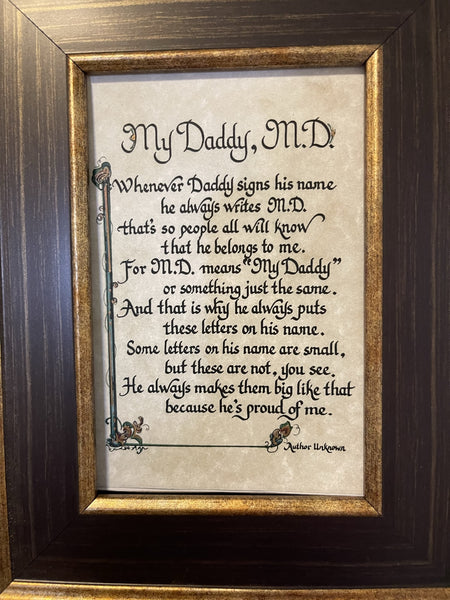 My Daddy, M.D.
Whenever Daddy signs his name
he always writes M.D.
that's so people all will know
that he belongs to me.
For M.D. means "My Daddy"
or something just the same.
And that is why he always puts
these letters on his name.
Some letters on his name are small,
but these are not, you see.
He always makes them big like that
because he's proud of me.
Author Unknown